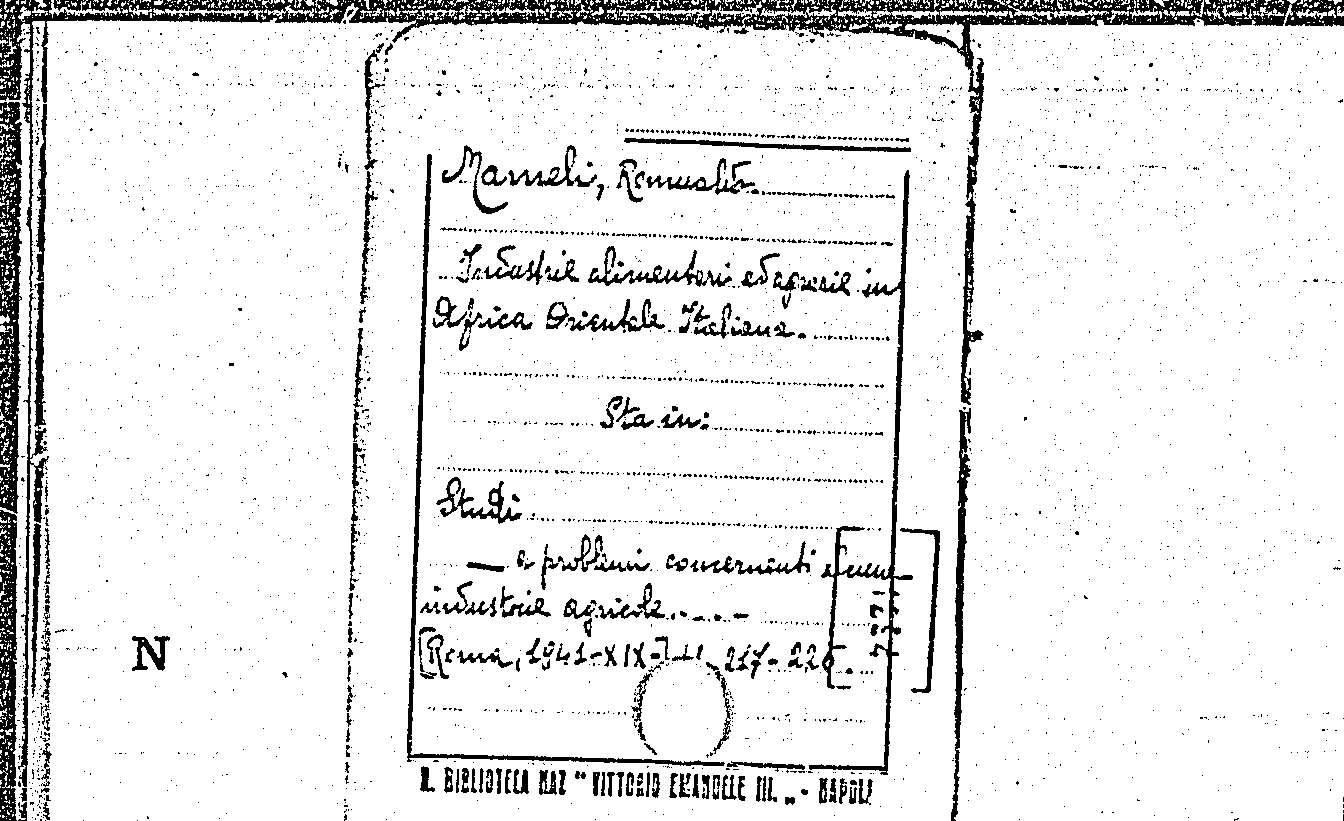 Mameli, Romualdo.
Industrie alimentari ed agrarie in
Africa Orientale Italiana.
Sta in:
Studi
— e problemi concernenti alcune
industrie agricole....-
[Roma, 1941-XIX-] 217-226.
7771
N
R. BIBLIOTECA NAZ " VITTORIO EMANUELE III. „ - NAPOLI